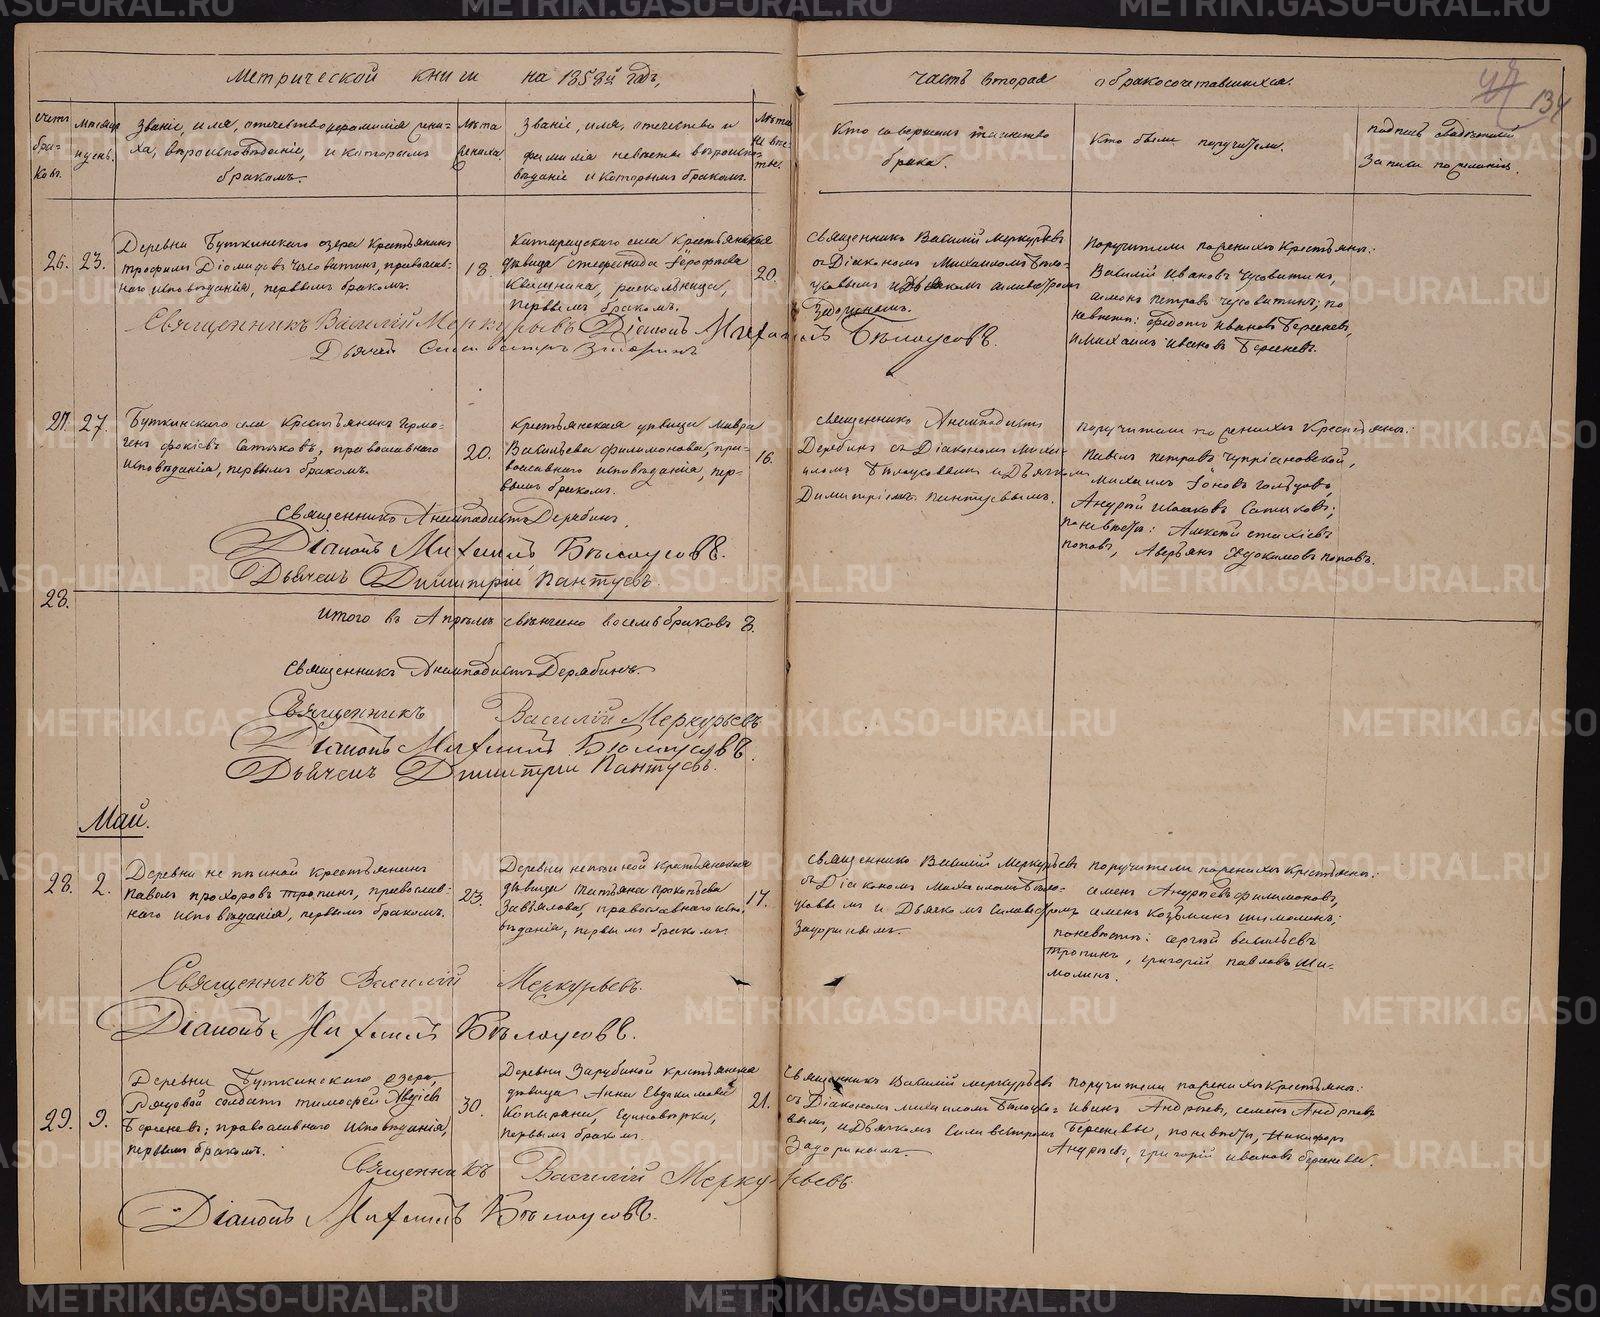 Метрической книги на 1858й годъ,
часть вторая о бракосочетавшихся.
134
Счетъ браковъ.
Мѣсяцъ и день.
Званіе, имя, отечество и фамилія жениха, вѣроисповѣданіе, и которымъ бракомъ.
Лѣта жениха.
Званіе, имя, отечество и фамилія невѣсты вѣроисповѣданіе и которымъ бракомъ.
Лѣта невѣсты.
Кто совершалъ таинство брака.
Кто были поручители.
Подпись свидѣтелей записи по желанію.
26.
23.
Деревни Буткинскаго озера крестьянинъ
трофимъ Діомидовъ Чусовитинъ, православ-
наго исповѣданія, первымъ бракомъ.
18.
села крестьянская
дѣвица стефанида Іерофѣева
Квашнина, раскольница,
первымъ бракомъ.
20.
Священникъ Василій Меркурьевъ
съ Діакономъ Михаиломъ Бѣло-
усовымъ и Дьячкомъ силивестромъ
Задоринымъ.
Поручители по женихѣ крестьяне:
Василій Ивановъ Чусовитинъ,
петровъ чусовитинъ; по
невѣстѣ: федотъ Ивановъ Берсеневъ,
и михаилъ ивановъ Берсеневъ.
Священникъ Василій Меркурьевъ Діаконъ Михаилъ Бѣлоусовъ.
Дьячекъ Силивестръ Задоринъ
27.
27.
Буткинскаго села крестьянинъ Гермо-
генъ фокіевъ Сатюковъ, православнаго
исповѣданія, первымъ бракомъ.
20.
крестьянская дѣвица Мавра
Васильева филимонова, пра-
вославнаго исповѣданія, пер-
вымъ бракомъ.
16.
священникъ Анемподистъ
Дерябинъ съ Діакономъ Миха-
иломъ Бѣлоусовымъ и Дьячкомъ
Димитріемъ Пантуевымъ.
поручители по женихѣ крестьяне:
Павелъ петровъ Чупріановской,
михаилъ Іоновъ
Андрей Сатюковъ;
по невѣстѣ: Алексѣй
поповъ, Аверьянъ Евдокимовъ поповъ.
Священникъ Анемподистъ Дерябинъ.
Діаконъ Михаилъ Бѣлоусовъ.
Дьячекъ Димитрій Пантуевъ.
28.
Итого въ Апрѣлѣ свѣнчано восемь браковъ 8.
Священникъ Анемподистъ Дерябинъ.
Священникъ Василій Меркурьевъ
Діаконъ Михаилъ Бѣлоусовъ.
Дьячекъ Димитрій Пантуевъ.
Май.
28.
2.
Деревни непѣиной крестьянинъ
Павелъ прохоровъ тропинъ, православ-
наго исповѣданія, первымъ бракомъ.
23.
Деревни непѣиной крестьянская
дѣвица татьяна прокопьева
Завьялова, православнаго испо-
вѣданія, первымъ бракомъ.
17.
священникъ Василій Меркурьевъ
съ Діакономъ Михаиломъ Бѣло-
усовымъ и Дьячкомъ Силивестромъ
Задоринымъ.
поручители по женихѣ крестьяне:
семенъ Андреевъ филимоновъ,
семенъ козьминъ шимолинъ;
по невѣстѣ: сергѣй васильевъ
тропинъ, григорій павловъ ши-
молинъ.
Священникъ Василій Меркурьевъ.
Діаконъ Михаилъ Бѣлоусовъ.
29.
9.
Деревни Буткинскаго озера,
Рядовой солдатъ тимофей
Берсеневъ; православнаго исповѣданія,
первымъ бракомъ.
30.
Деревни Зарубиной крестьянская
дѣвица Анна Евдокимова
единовѣрка,
первымъ бракомъ.
21.
Священникъ Василій Меркурьевъ
съ Діакономъ михаиломъ Бѣлоусо-
вымъ, и Дьячкомъ Силивестромъ
Задоринымъ
поручители по женихѣ крестьяне:
иванъ Андреевъ, семенъ Андреевъ
Берсеневы, по невѣстѣ, Никифоръ
Андреевъ, григорій ивановъ берсеневы.
Священникъ Василій Меркурьевъ.
Діаконъ Михаилъ Бѣлоусовъ.
METRIKI.GASO-URAL.RU